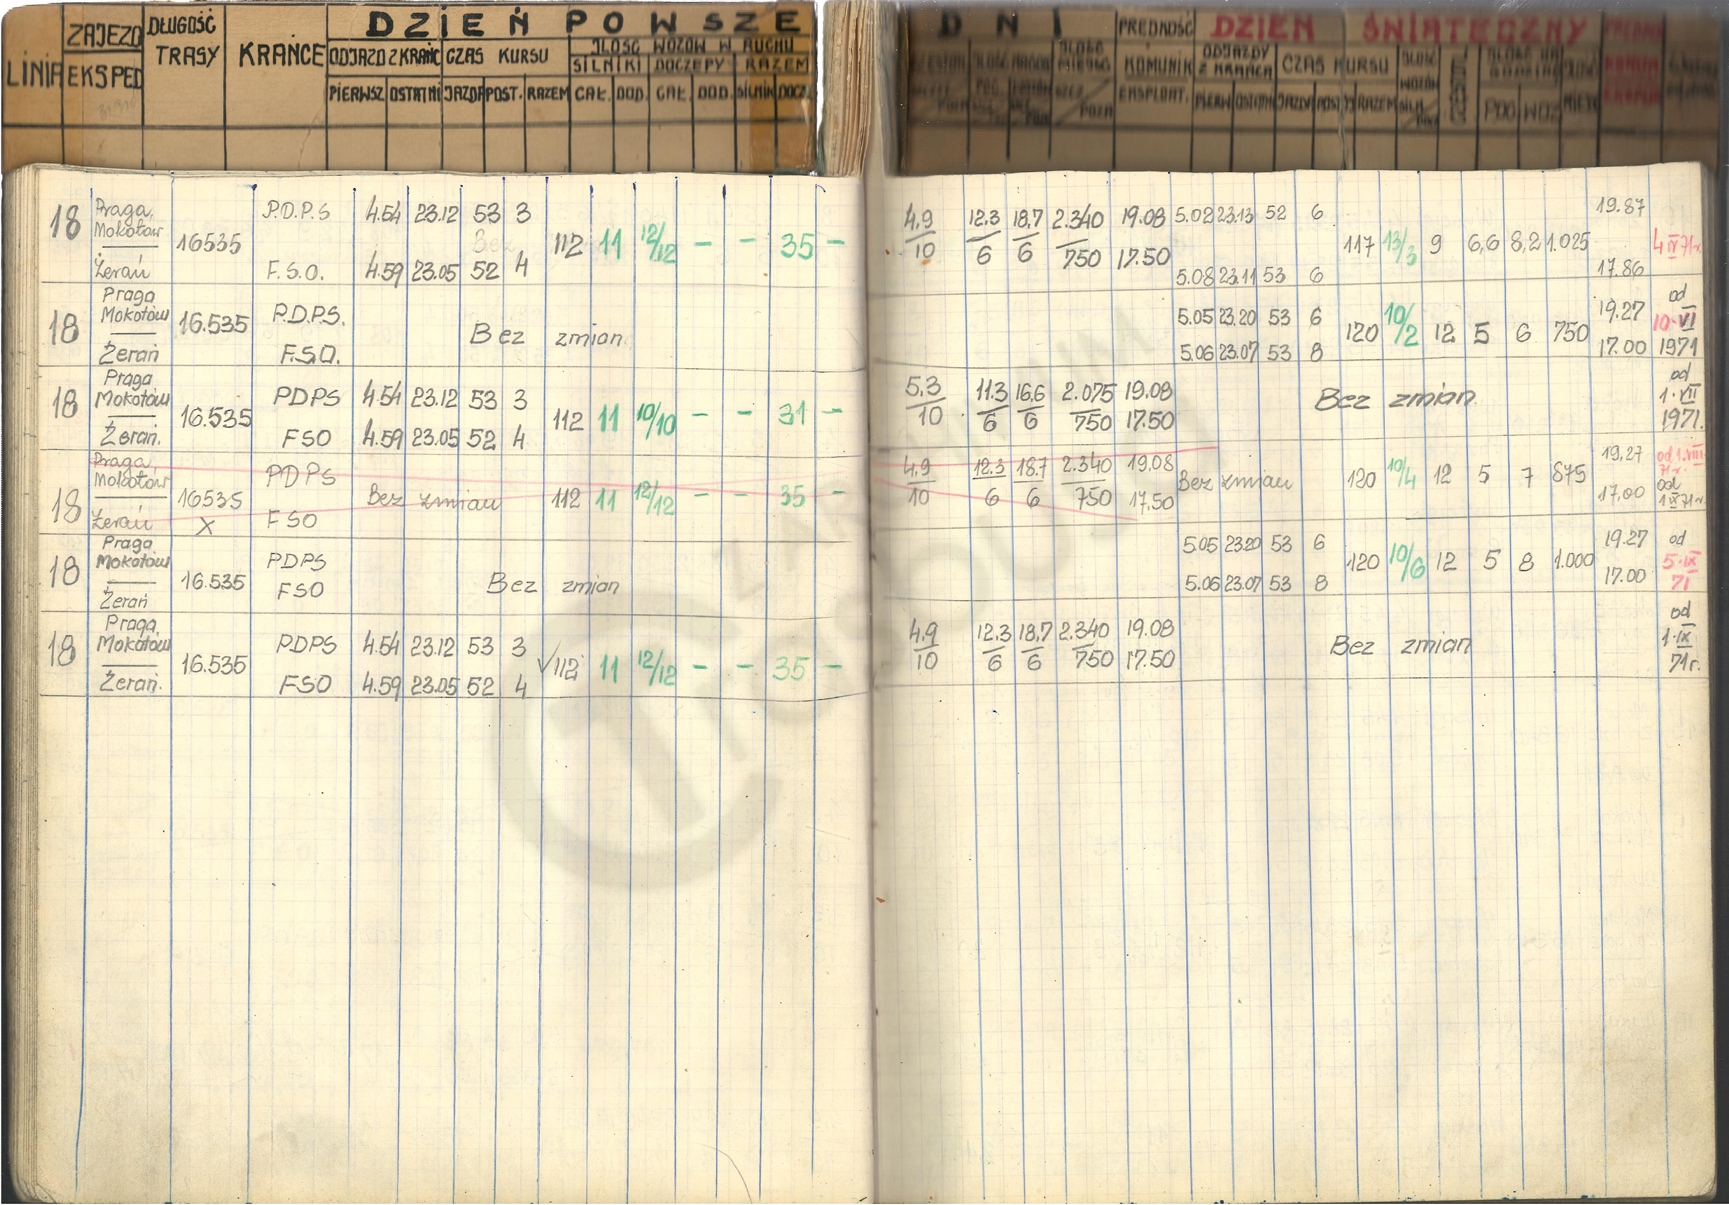 LINIA
ZAJEZD
EKSPED
DŁUGOŚĆ
TRASY
KRAŃCE
DZIEŃ POWSZE
ODJAZD Z KRAŃC
CZAS KURSU
ILOŚĆ WOZÓW W RUCHU
SILNIKI DOCZEPY RAZEM
PIERWSZ. OSTATNI JAZDA POST. RAZEM CAŁ. DOD. CAŁ. DOD. SILNIK DOCZ.
DNI
PRĘDKOŚĆ
KOMUNIK
EKSPLOAT.
DZIEŃ ŚWIĄTECZNY
ODJAZDY
Z KRAŃCA
CZAS KURSU
18 Praga, P.D.P.S 4.54 23.12 53 3 4.9 12.3 18,7 2.340 19.08 5.02 23.13 52 6 19.87
Mokotów 16535 112 11 12/12 - - 35 - 117 13/3 9 6,6 8,2 1.025 4 IX 71r.
Żerań F.S.O. 4.59 23.05 52 4 10 6 6 750 17.50 5.08 23.11 53 6 17.86
Praga od
18 Mokotów 16.535 P.D.P.S. 5.05 23.20 53 6 19.27 10.VI
Bez zmian 120 10/2 12 5 6 750
Żerań F.S.O. 5.06 23.07 53 8 17.00 1971
Praga od
18 Mokotów PDPS 4.54 23.12 53 3 5,3 11.3 16,6 2.075 19.08 Bez zmian 1.VII
16.535 112 11 10/10 - - 31 -
Żerań. FSO 4.59 23.05 52 4 10 6 6 750 17.50 1971.
Praga, PDPS 4.9 12.3 18.7 2.340 19.08 19,27 od 1.VIII
Mokotów 71r.
18 16535 Bez zmian 112 11 12/12 - - 35 - Bez zmian 120 10/4 12 5 7 875 od
Żerań X FSO 10 6 6 750 17,50 17,00 1 IX 71r.
Praga PDPS 5.05 23.20 53 6 19.27 od
18 Mokotów 16.535 Bez zmian 120 10/6 12 5 8 1.000 5.IX
Żerań FSO 5.06 23.07 53 8 17.00 71
Praga od
18 Mokotów PDPS 4.54 23.12 53 3 4.9 12.3 18,7 2.340 19.08 Bez zmian 1.IX
16.535 112 11 12/12 - - 35 -
Żerań. FSO 4.59 23.05 52 4 10 6 6 750 17.50 71r.